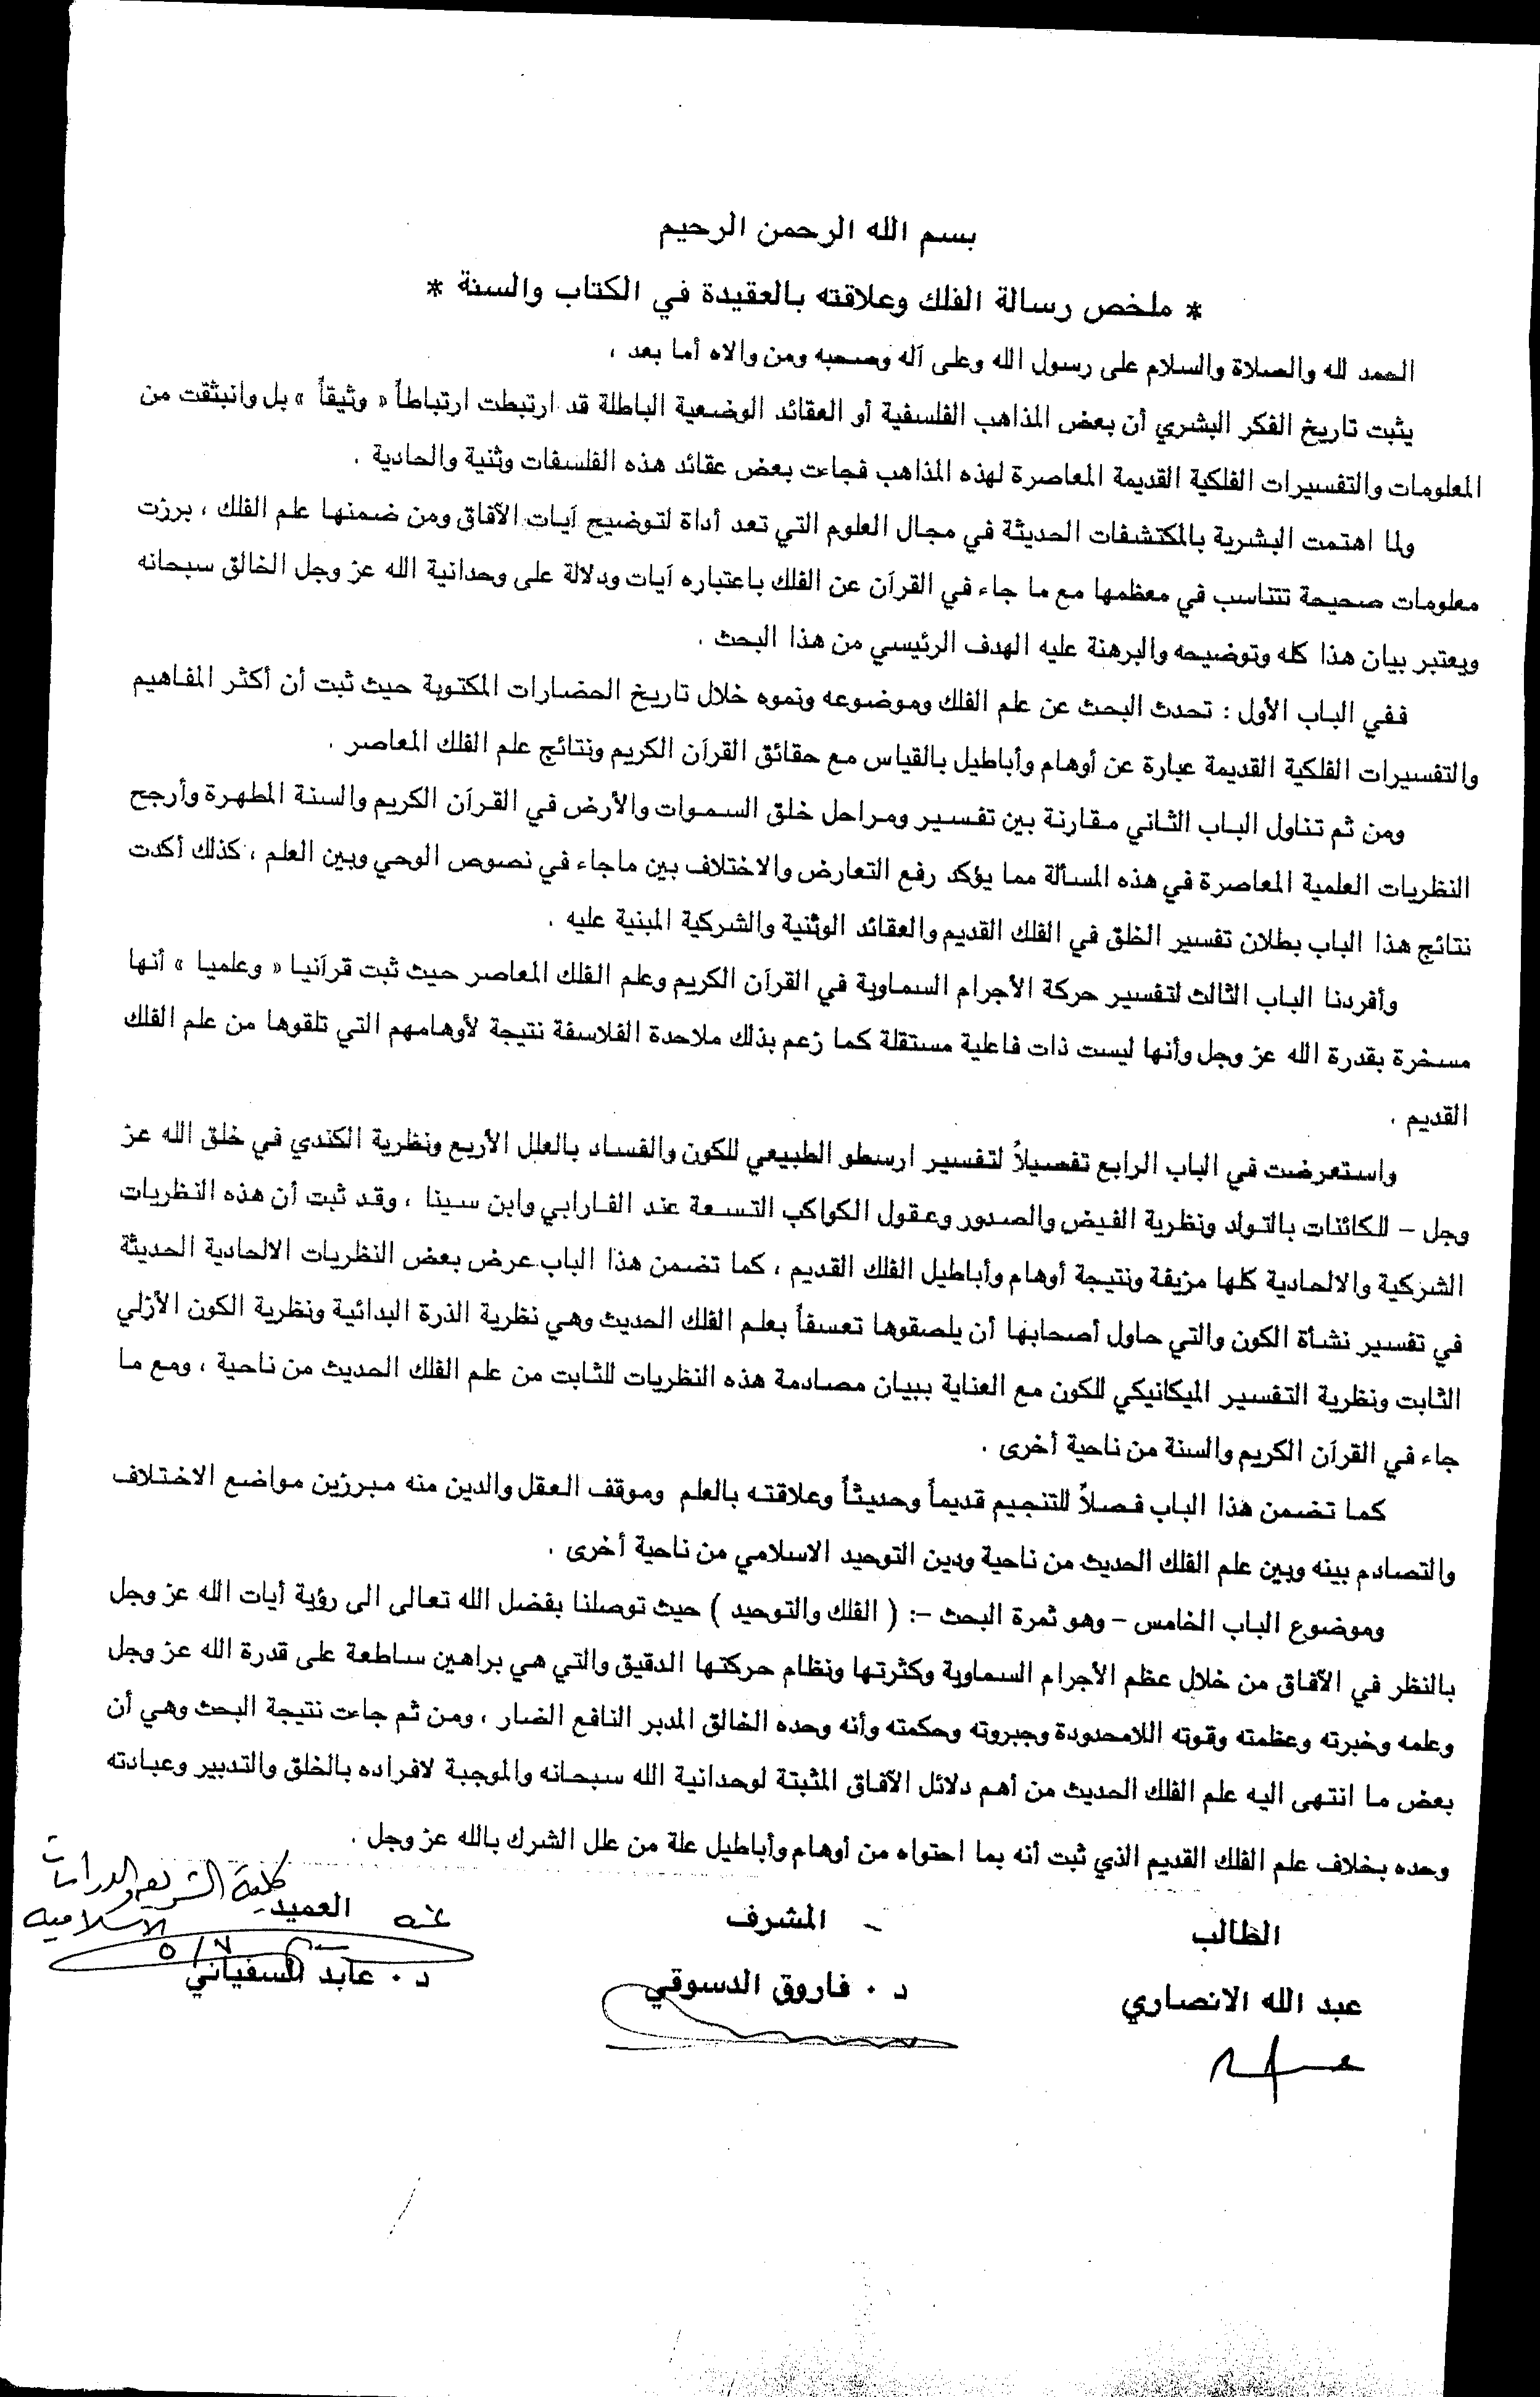 بسم الله الرحمن الرحيم
* ملخص رسالة الفلك وعلاقته بالعقيدة في الكتاب والسنة *
الحمد لله والصلاة والسلام على رسول الله وعلى آله وصحبه ومن والاه أما بعد ،
يثبت تاريخ الفكر البشري أن بعض المذاهب الفلسفية أو العقائد الوضعية الباطلة قد ارتبطت ارتباطاً « وثيقاً » بل وانبثقت من
المعلومات والتفسيرات الفلكية القديمة المعاصرة لهذه المذاهب فجاءت بعض عقائد هذه الفلسفات وثنية والحادية .
ولما اهتمت البشرية بالمكتشفات الحديثة في مجال العلوم التي تعد أداة لتوضيح آيات الآفاق ومن ضمنها علم الفلك ، برزت
معلومات صحيحة تتناسب في معظمها مع ما جاء في القرآن عن الفلك باعتباره آيات ودلالة على وحدانية الله عز وجل الخالق سبحانه
ويعتبر بيان هذا كله وتوضيحه والبرهنة عليه الهدف الرئيسي من هذا البحث .
ففي الباب الأول : تحدث البحث عن علم الفلك وموضوعه ونموه خلال تاريخ الحضارات المكتوبة حيث ثبت أن أكثر المفاهيم
والتفسيرات الفلكية القديمة عبارة عن أوهام وأباطيل بالقياس مع حقائق القرآن الكريم ونتائج علم الفلك المعاصر .
ومن ثم تناول الباب الثاني مقارنة بين تفسير ومراحل خلق السموات والأرض في القرآن الكريم والسنة المطهرة وأرجح
النظريات العلمية المعاصرة في هذه المسألة مما يؤكد رفع التعارض والاختلاف بين ماجاء في نصوص الوحي وبين العلم ، كذلك أكدت
نتائج هذا الباب بطلان تفسير الخلق في الفلك القديم والعقائد الوثنية والشركية المبنية عليه .
وأفردنا الباب الثالث لتفسير حركة الأجرام السماوية في القرآن الكريم وعلم الفلك المعاصر حيث ثبت قرآنيا « وعلميا » أنها
مسخرة بقدرة الله عز وجل وأنها ليست ذات فاعلية مستقلة كما زعم بذلك ملاحدة الفلاسفة نتيجة لأوهامهم التي تلقوها من علم الفلك
القديم .
واستعرضت في الباب الرابع تفصيلاً لتفسير ارسطو الطبيعي للكون والفساد بالعلل الأربع ونظرية الكندي في خلق الله عز
وجل – للكائنات بالتولد ونظرية الفيض والصدور وعقول الكواكب التسعة عند الفارابي وابن سينا ، وقد ثبت أن هذه النظريات
الشركية والالحادية كلها مزيفة ونتيجة أوهام وأباطيل الفلك القديم ، كما تضمن هذا الباب عرض بعض النظريات الالحادية الحديثة
في تفسير نشأة الكون والتي حاول أصحابها أن يلصقوها تعسفاً بعلم الفلك الحديث وهي نظرية الذرة البدائية ونظرية الكون الأزلي
الثابت ونظرية التفسير الميكانيكي للكون مع العناية ببيان مصادمة هذه النظريات للثابت من علم الفلك الحديث من ناحية ، ومع ما
جاء في القرآن الكريم والسنة من ناحية أخرى .
كما تضمن هذا الباب فصلاً للتنجيم قديماً وحديثاً وعلاقته بالعلم وموقف العقل والدين منه مبرزين مواضع الاختلاف
والتصادم بينه وبين علم الفلك الحديث من ناحية ودين التوحيد الاسلامي من ناحية أخرى .
وموضوع الباب الخامس – وهو ثمرة البحث –: ( الفلك والتوحيد ) حيث توصلنا بفضل الله تعالى الى رؤية آيات الله عز وجل
بالنظر في الآفاق من خلال عظم الأجرام السماوية وكثرتها ونظام حركتها الدقيق والتي هي براهين ساطعة على قدرة الله عز وجل
وعلمه وخبرته وعظمته وقوته اللامحدودة وجبروته وحكمته وأنه وحده الخالق المدبر النافع الضار ، ومن ثم جاءت نتيجة البحث وهي أن
بعض ما انتهى اليه علم الفلك الحديث من أهم دلائل الآفاق المثبتة لوحدانية الله سبحانه والموجبة لافراده بالخلق والتدبير وعبادته
وحده بخلاف علم الفلك القديم الذي ثبت أنه بما احتواه من أوهام وأباطيل علة من علل الشرك بالله عز وجل .
الطالب
عبد الله الانصاري
المشرف
د . فاروق الدسوقي
كلية الشريعة والدراسات
الاسلامية
عنه العميد
د . عابد السفياني